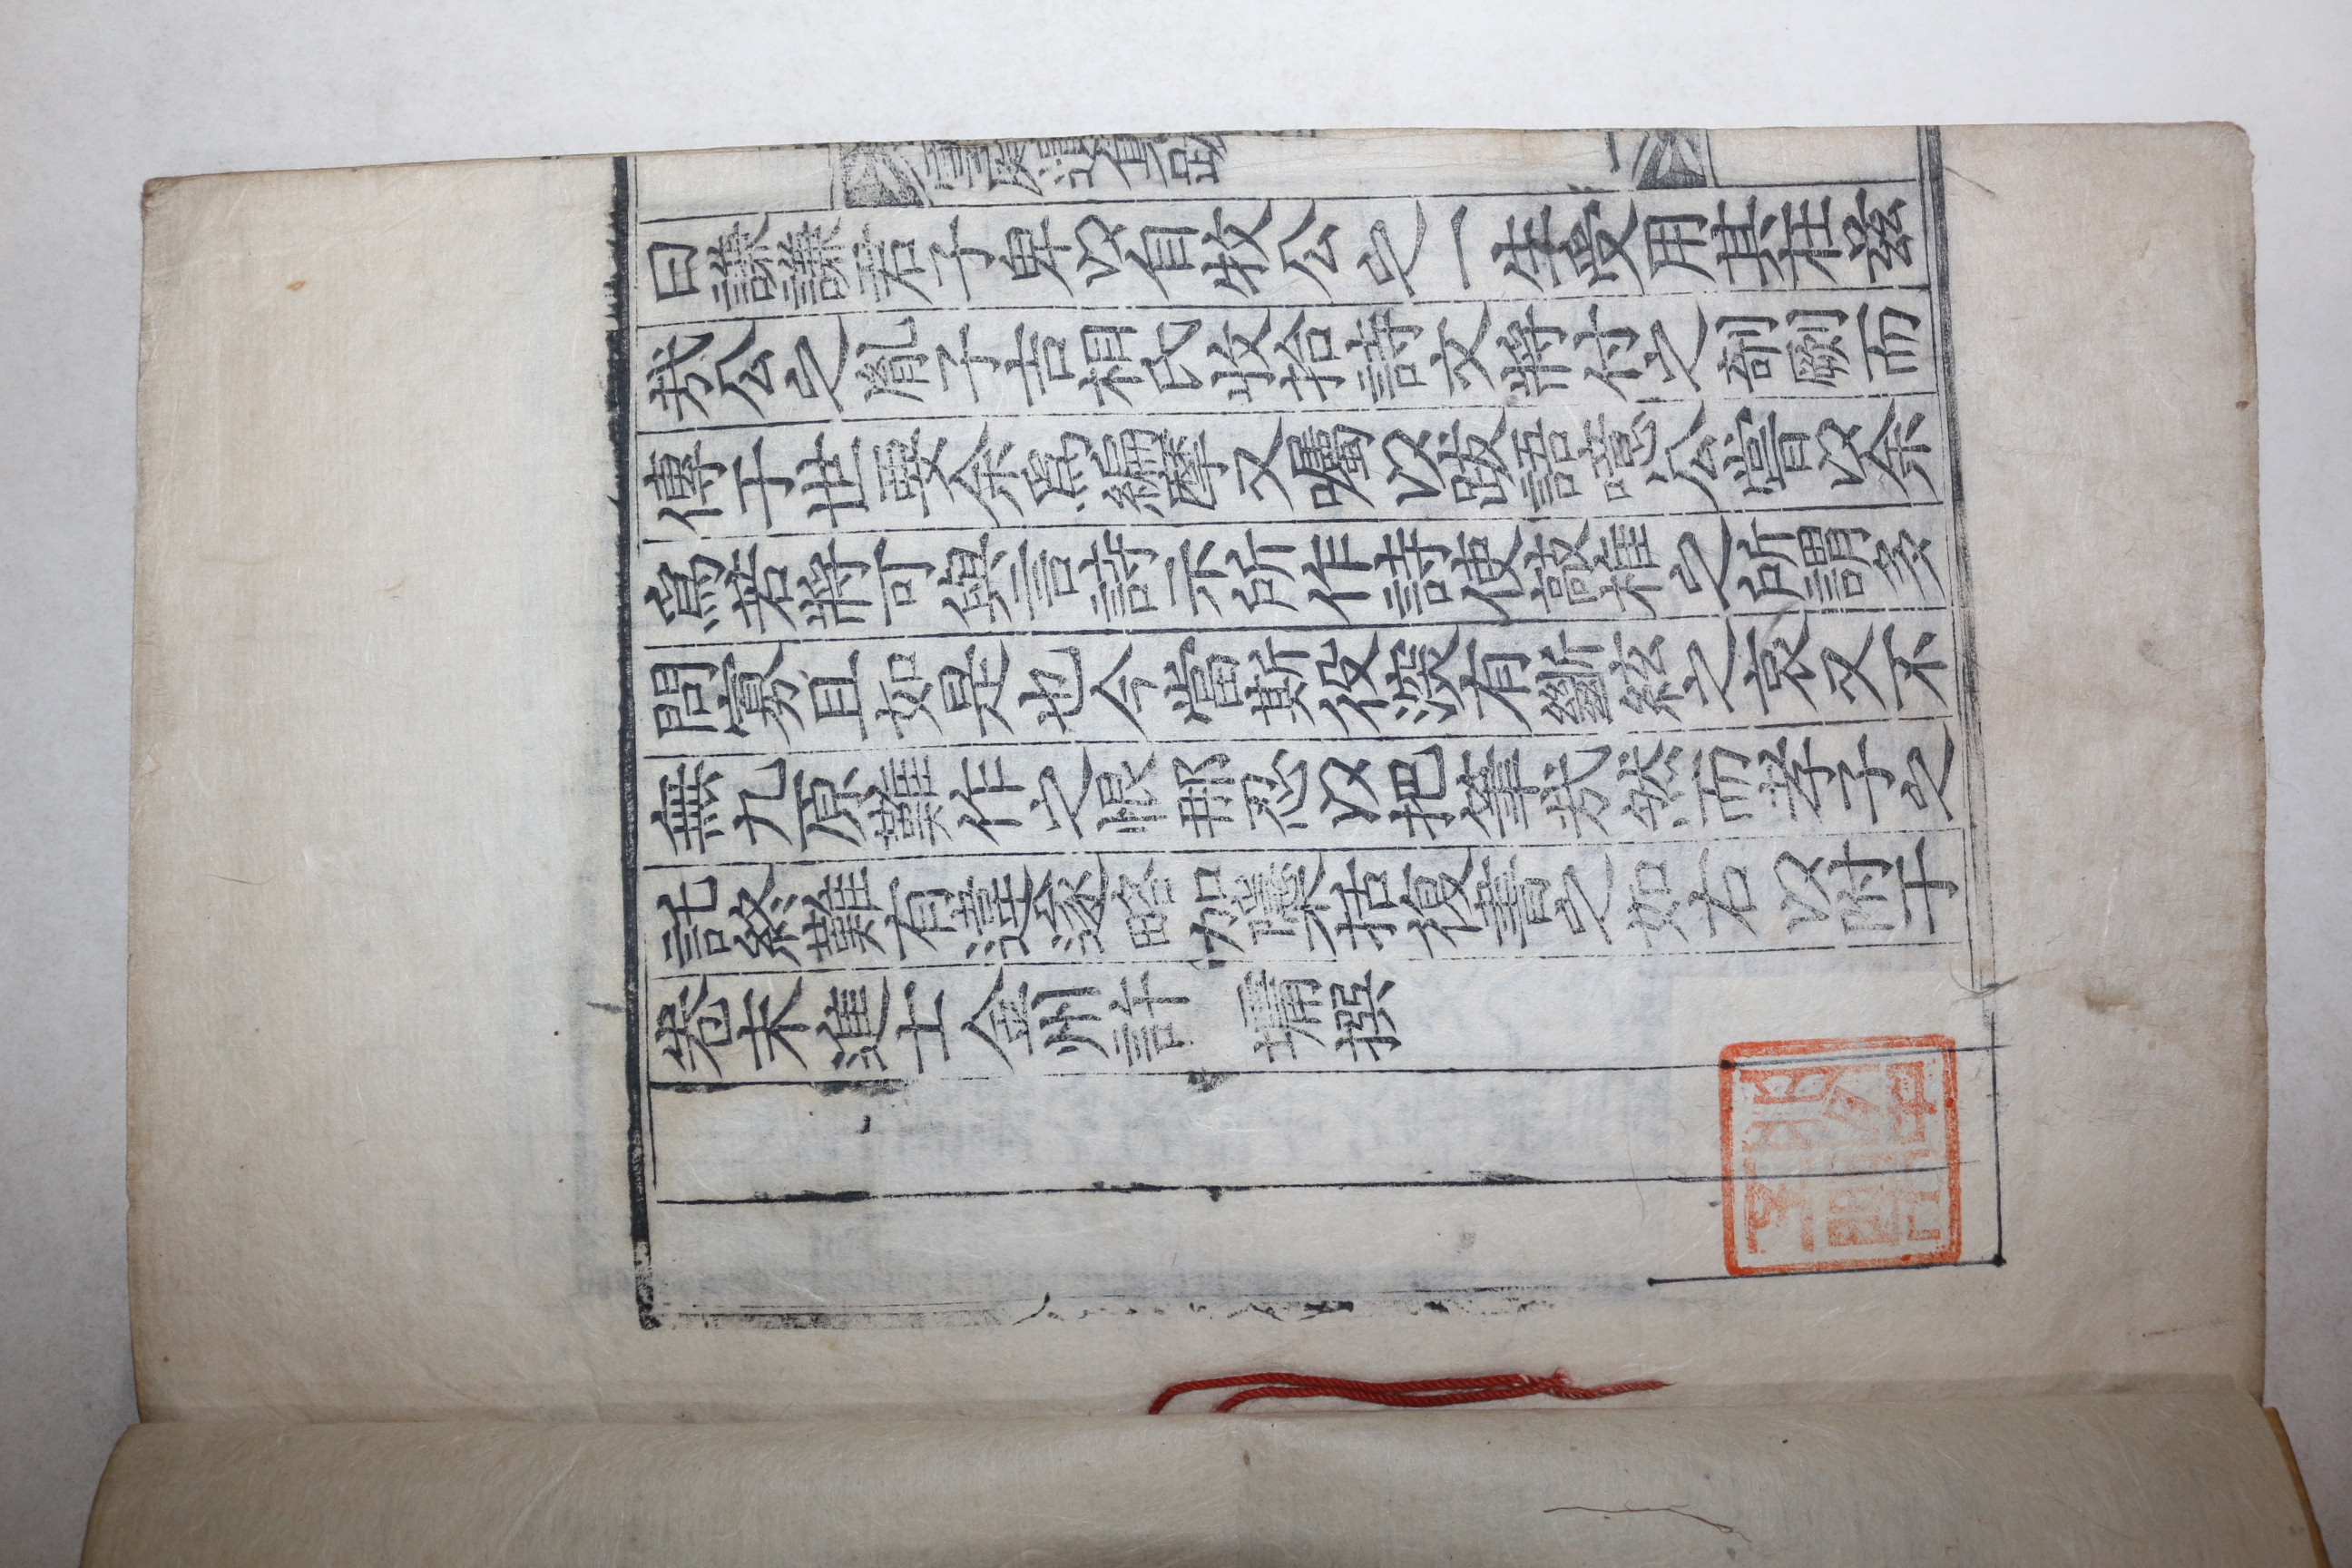 曰謙謙君子卑以自牧公之一生受用其在玆
我公之胤子吉相氏收拾詩文將付之剞劂而
傳于世要余爲編摩又囑以跋語噫公嘗以余
爲若將可與言詩示所作詩使敲推之所謂多
問寡且如是也今當斯役深有斷絃之哀又不
無九原難作之恨那忍以把筆哉然而孝子之
託終難有違遂略加檃栝復書之如右以附于
卷末進士金州許 墧撰